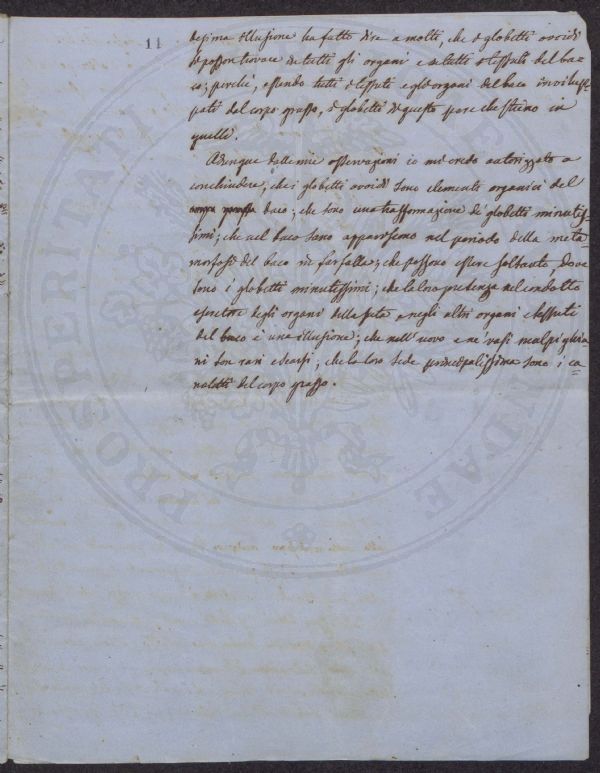 11
desima illusione ha fatto dire a molti, che i globetti ovoidi
si posson trovare in tutti gli organi e in tutti i tessuti del ba=
co; perché, essendo tutti i tessuti e gli organi del baco invilup=
pati dal corpo grasso, i globetti di questo pare che stieno in
quelli.
Adunque dalle mie osservazioni io mi credo autorizzato a
conchiudere, che i globetti ovoidi sono elementi organici del
baco; che sono una trasformazione de' globetti minutis=
simi; che nel baco sano appariscono nel periodo della meta
morfosi del baco in farfalla; che possono essere soltanto, dove
sono i globetti minutissimi; che la loro presenza nel condotto
escretore degli organi della seta e negli altri organi e tessuti
del baco è una illusione; che nell'uovo e ne' vasi malpighia=
ni son rari e scarsi; che la loro sede principalissima sono i ca=
naletti del corpo grasso.
PROSPERITATI
NDAE